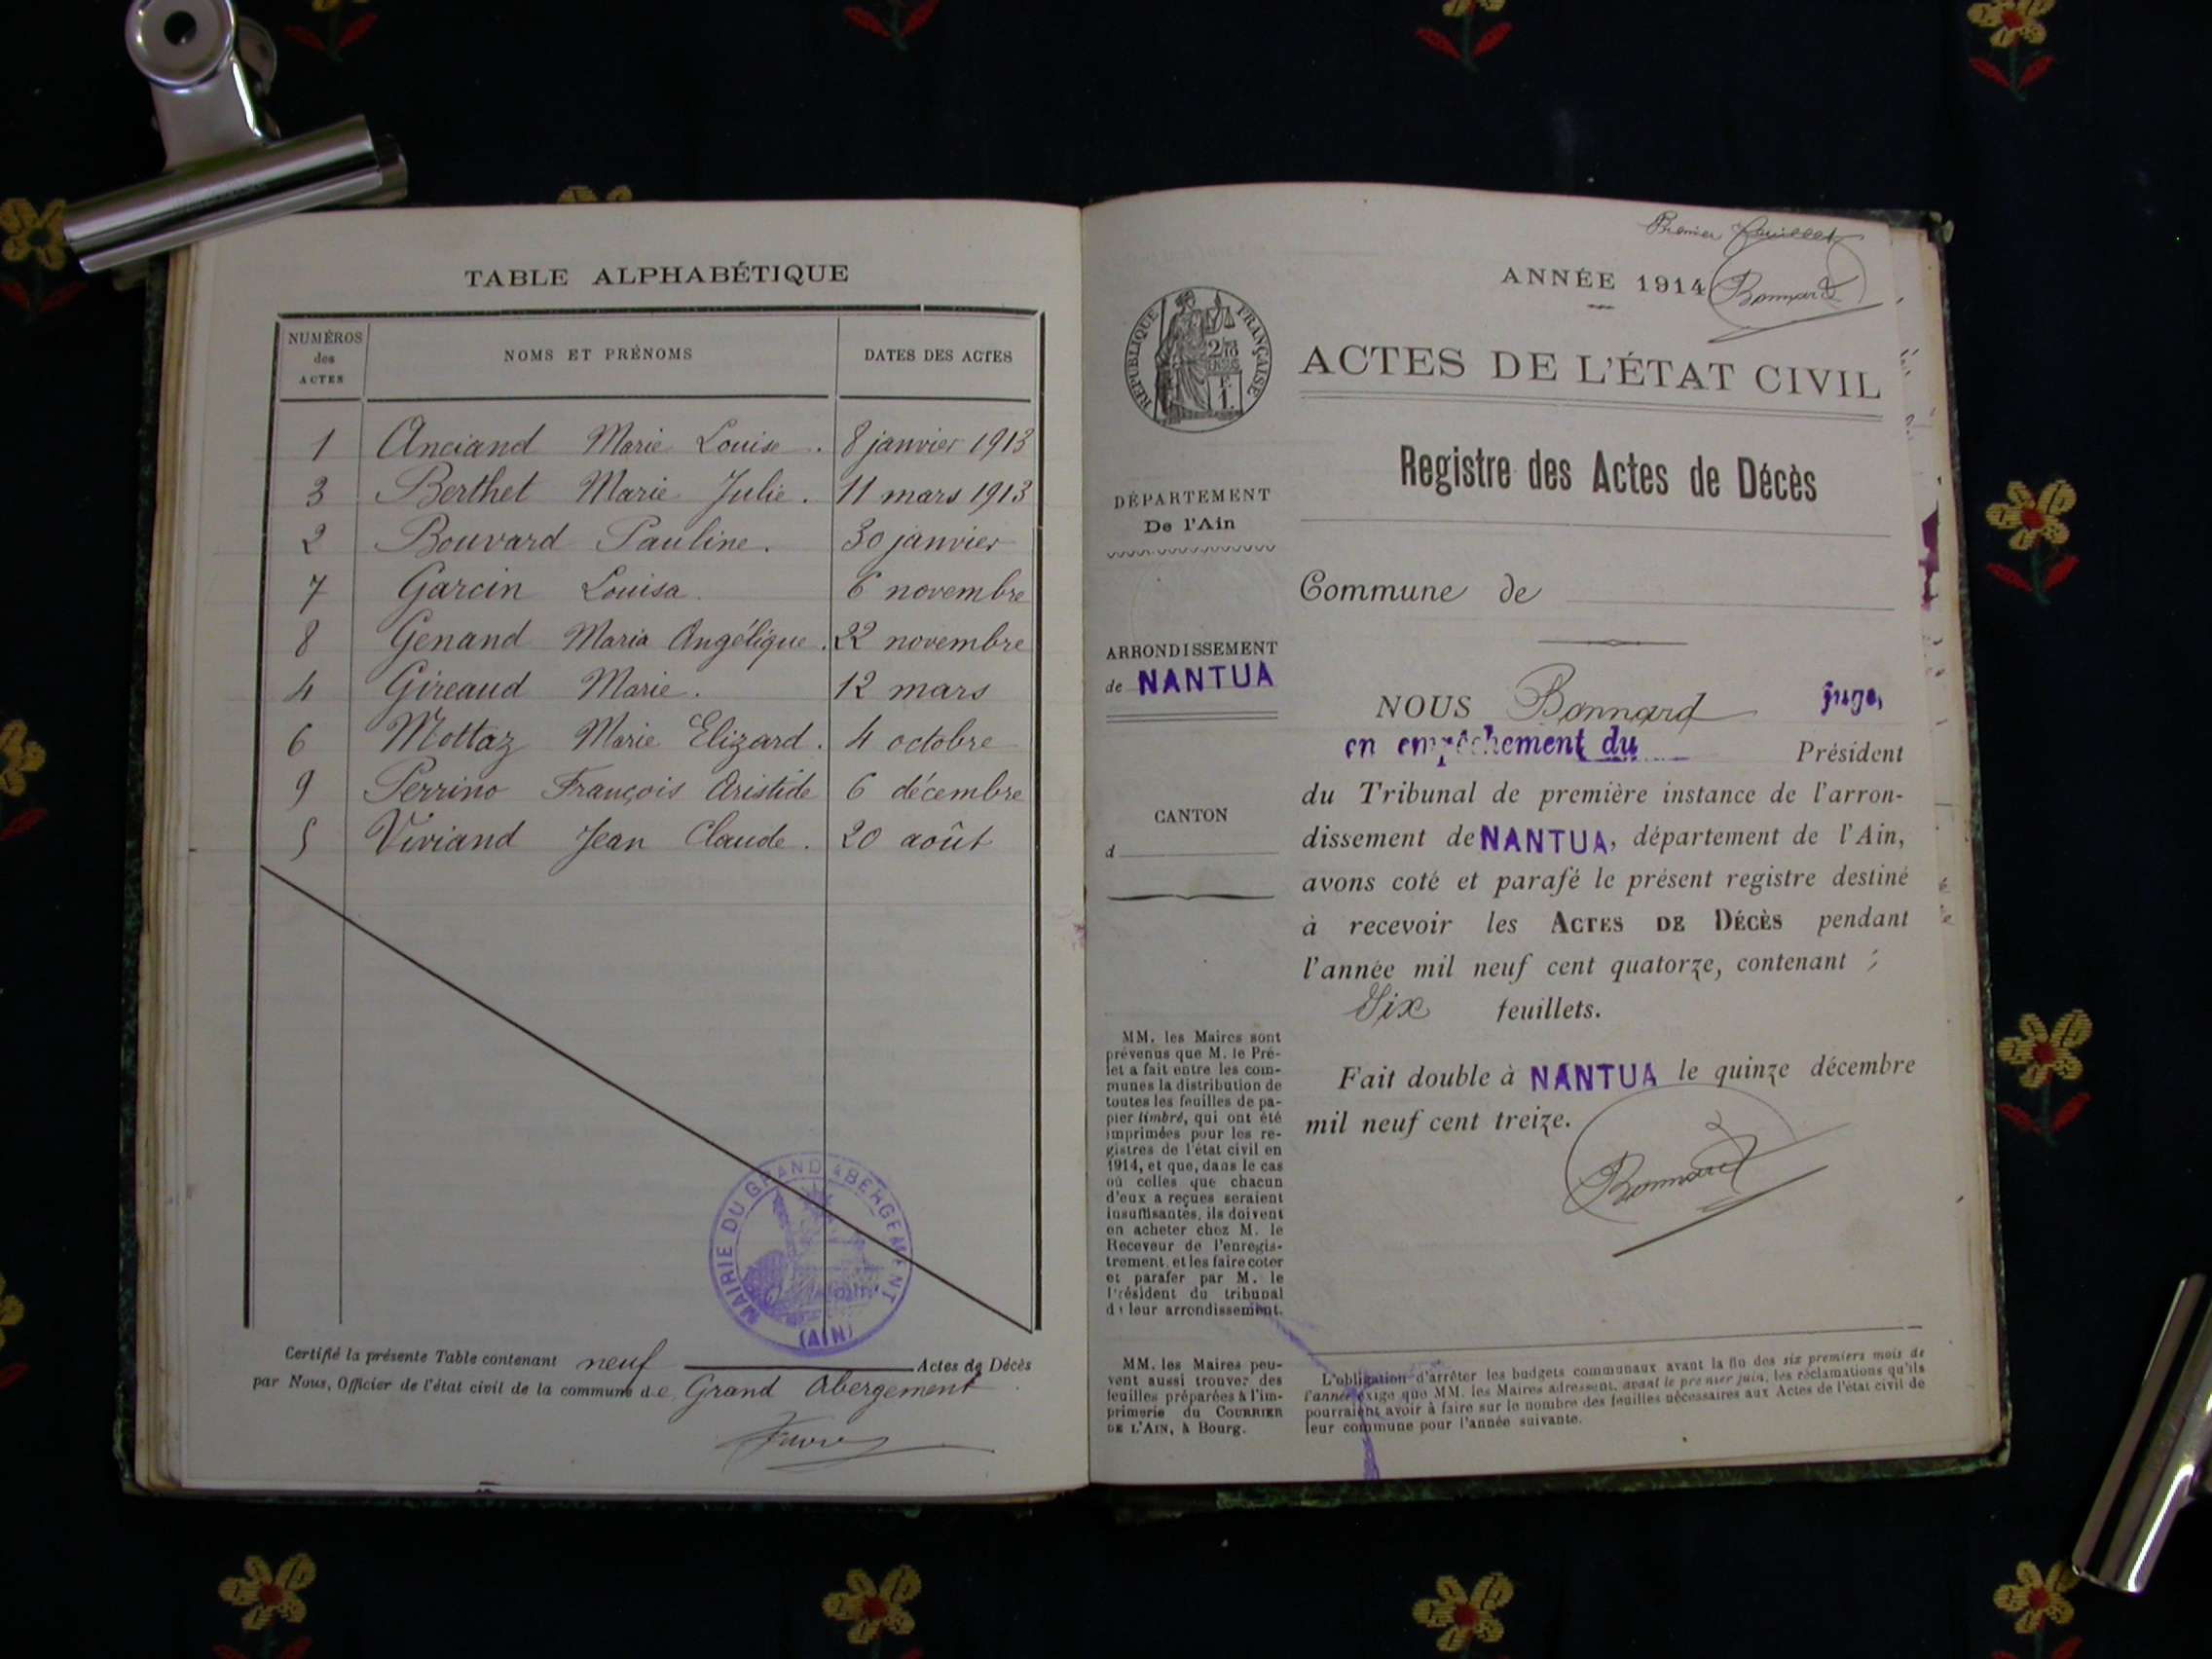 TABLE ALPHABÉTIQUE
NUMÉROS des ACTES NOMS ET PRÉNOMS DATES DES ACTES
1 Anciand Marie Louise. 8 janvier 1913
3 Berthet Marie Julie. 11 mars 1913
2 Bouvard Pauline. 30 janvier
7 Garcin Louisa. 6 novembre
8 Genand Maria Angélique. 22 novembre
4 Gireaud Marie. 12 mars
6 Mottaz Marie Elizard. 4 octobre
9 Perrino François Aristide 6 décembre
5 Viviand Jean Claude. 20 août
MAIRIE DU GRAND ABERGEMENT
(AIN)
Certifié la présente Table contenant neuf Actes de Décès
par Nous, Officier de l'état civil de la commune de Grand Abergement
Favre
Premier feuillet
Bonnard
ANNÉE 1914
RÉPUBLIQUE FRANÇAISE
ACTES DE L'ÉTAT CIVIL
Registre des Actes de Décès
DÉPARTEMENT
De l'Ain
Commune de
ARRONDISSEMENT
de NANTUA
CANTON
d
MM. les Maires sont
prévenus que M. le Pré-
fet a fait entre les com-
munes la distribution de
toutes les feuilles de pa-
pier timbré, qui ont été
imprimées pour les re-
gistres de l'état civil en
1914, et que, dans le cas
où celles que chacun
d'eux a reçues seraient
insuffisantes, ils doivent
en acheter chez M. le
Receveur de l'enregis-
trement, et les faire coter
et parafer par M. le
Président du tribunal
de leur arrondissement.
MM. les Maires peu-
vent aussi trouver des
feuilles préparées à l'im-
primerie du COURRIER
DE L'AIN, à Bourg.
NOUS Bonnard juge,
en empêchement du Président
du Tribunal de première instance de l'arron-
dissement de NANTUA, département de l'Ain,
avons coté et parafé le présent registre destiné
à recevoir les ACTES DE DÉCÈS pendant
l'année mil neuf cent quatorze, contenant
Six feuillets.
Fait double à NANTUA le quinze décembre
mil neuf cent treize.
Bonnard
L'obligation d'arrêter les budgets communaux avant la fin des six premiers mois de
l'année exige que MM. les Maires adressent, avant le premier juin, les réclamations qu'ils
pourraient avoir à faire sur le nombre des feuilles nécessaires aux Actes de l'état civil de
leur commune pour l'année suivante.